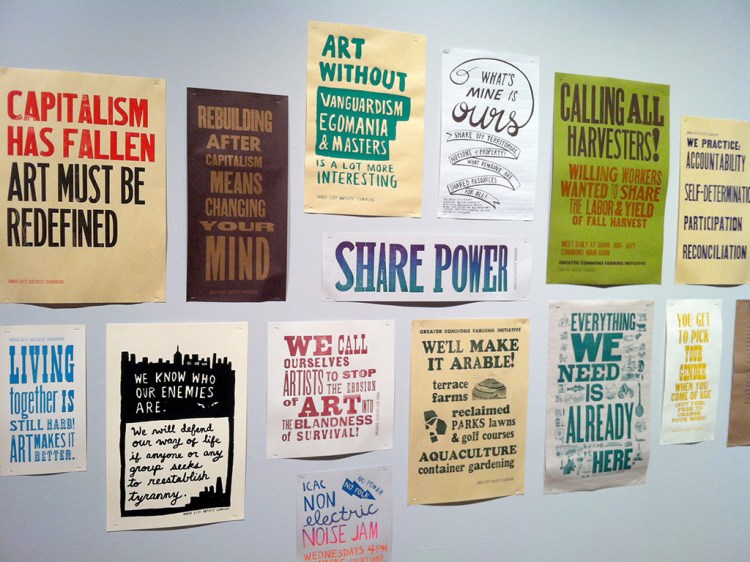 CAPITALISM
HAS FALLEN
ART MUST BE
REDEFINED
INNER CITY ARTISTS' COMMUNE
REBUILDING
AFTER
CAPITALISM
MEANS
CHANGING
YOUR
MIND
ART
WITHOUT
VANGUARDISM
EGOMANIA
& MASTERS
IS A LOT MORE
INTERESTING
INNER CITY ARTISTS' COMMUNE
WHAT'S
MINE IS
OURS
SHAKE OFF TERRITORIAL
NOTIONS of PROPERTY!
WHAT REMAINS ARE
SHARED RESOURCES
FOR ALL!
CALLING ALL
HARVESTERS!
WILLING WORKERS
WANTED to SHARE
THE LABOR & YIELD
OF FALL HARVEST
MEET DAILY AT DAWN AUG-SEPT
COMMONS MAIN BARN
GREATER COMMONS FARMING INITIATIVE
WE PRACTICE:
ACCOUNTABILITY
SELF-DETERMINATIO
PARTICIPATION
RECONCILIATION
SHARE POWER
LIVING
together IS
STILL HARD!
ART MAKES IT
BETTER.
WE KNOW WHO
OUR ENEMIES
ARE.
We will defend
our way of life
if anyone or any
group seeks
to reestablish
tyranny.
INNER CITY ARTISTS' COMMUNE
WE CALL
OURSELVES
ARTISTS TO STOP
THE EROSION
of ART INTO
THE BLANDNESS
OF SURVIVAL!
GREATER COMMONS FARMING INITIATIVE
WE'LL MAKE
IT ARABLE!
terrace
farms
reclaimed
PARKS lawns
& golf courses
AQUACULTURE
container gardening
EVERYTHING
WE
NEED
IS
ALREADY
HERE
YOU GET
TO PICK
YOUR
GENDER
WHEN YOU
COME OF AGE
(BUT FEEL
FREE TO
CHANGE
YOUR MIND)
ICAC
NO POWER
NO FOLK
NON
electric
NOISE JAM
WEDNESDAYS 4PM